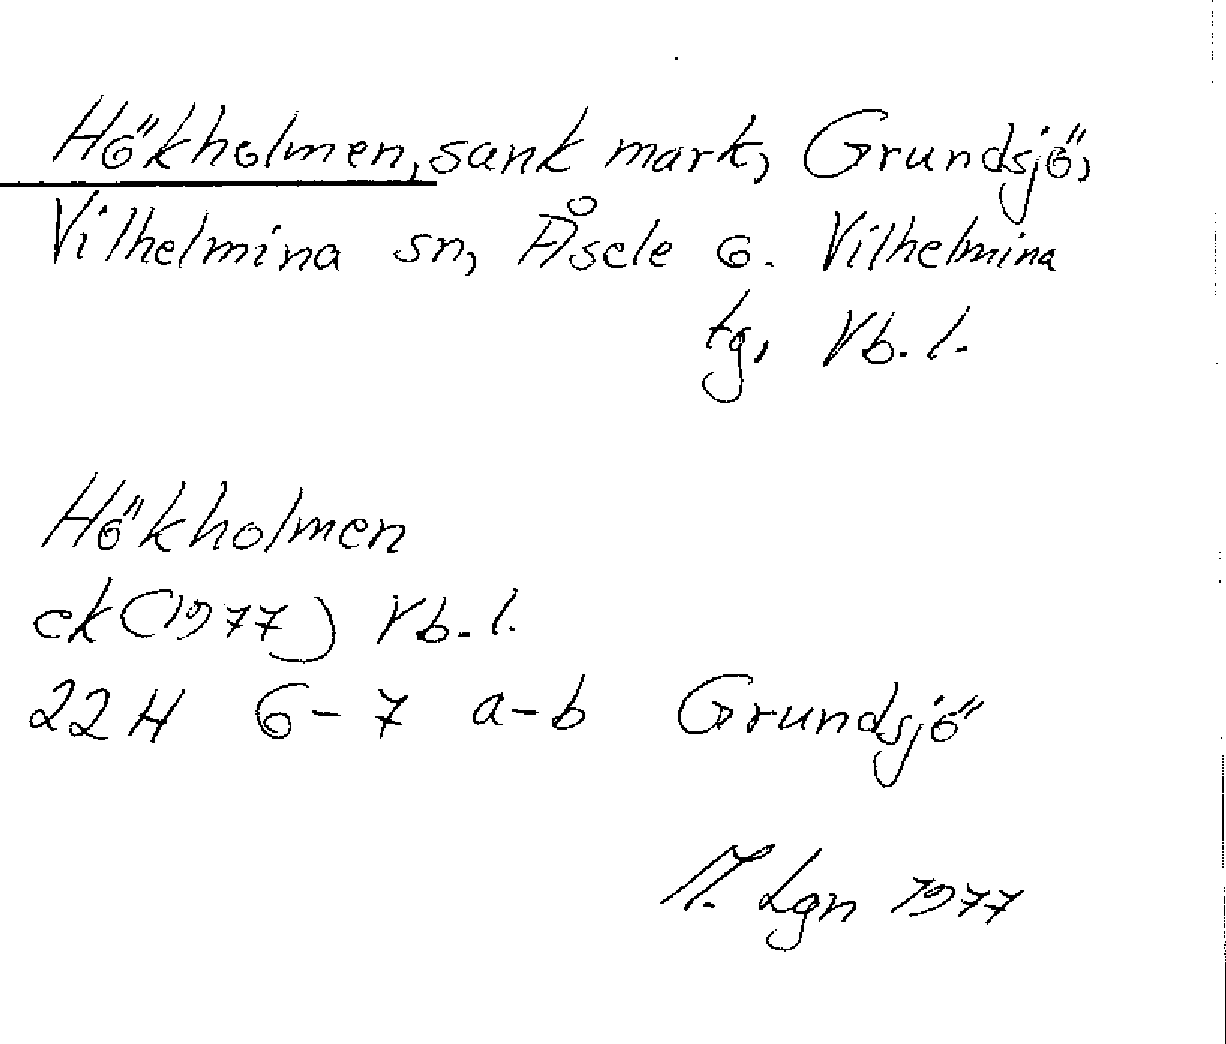 Hökholmen, sank mark, Grundsjö,
Vilhelmina sn, Åsele o. Vilhelmina
tg, Vb. l.
Hökholmen
ek (1977) Vb. l.
22H 6-7 a-b Grundsjö
Lgn 1977